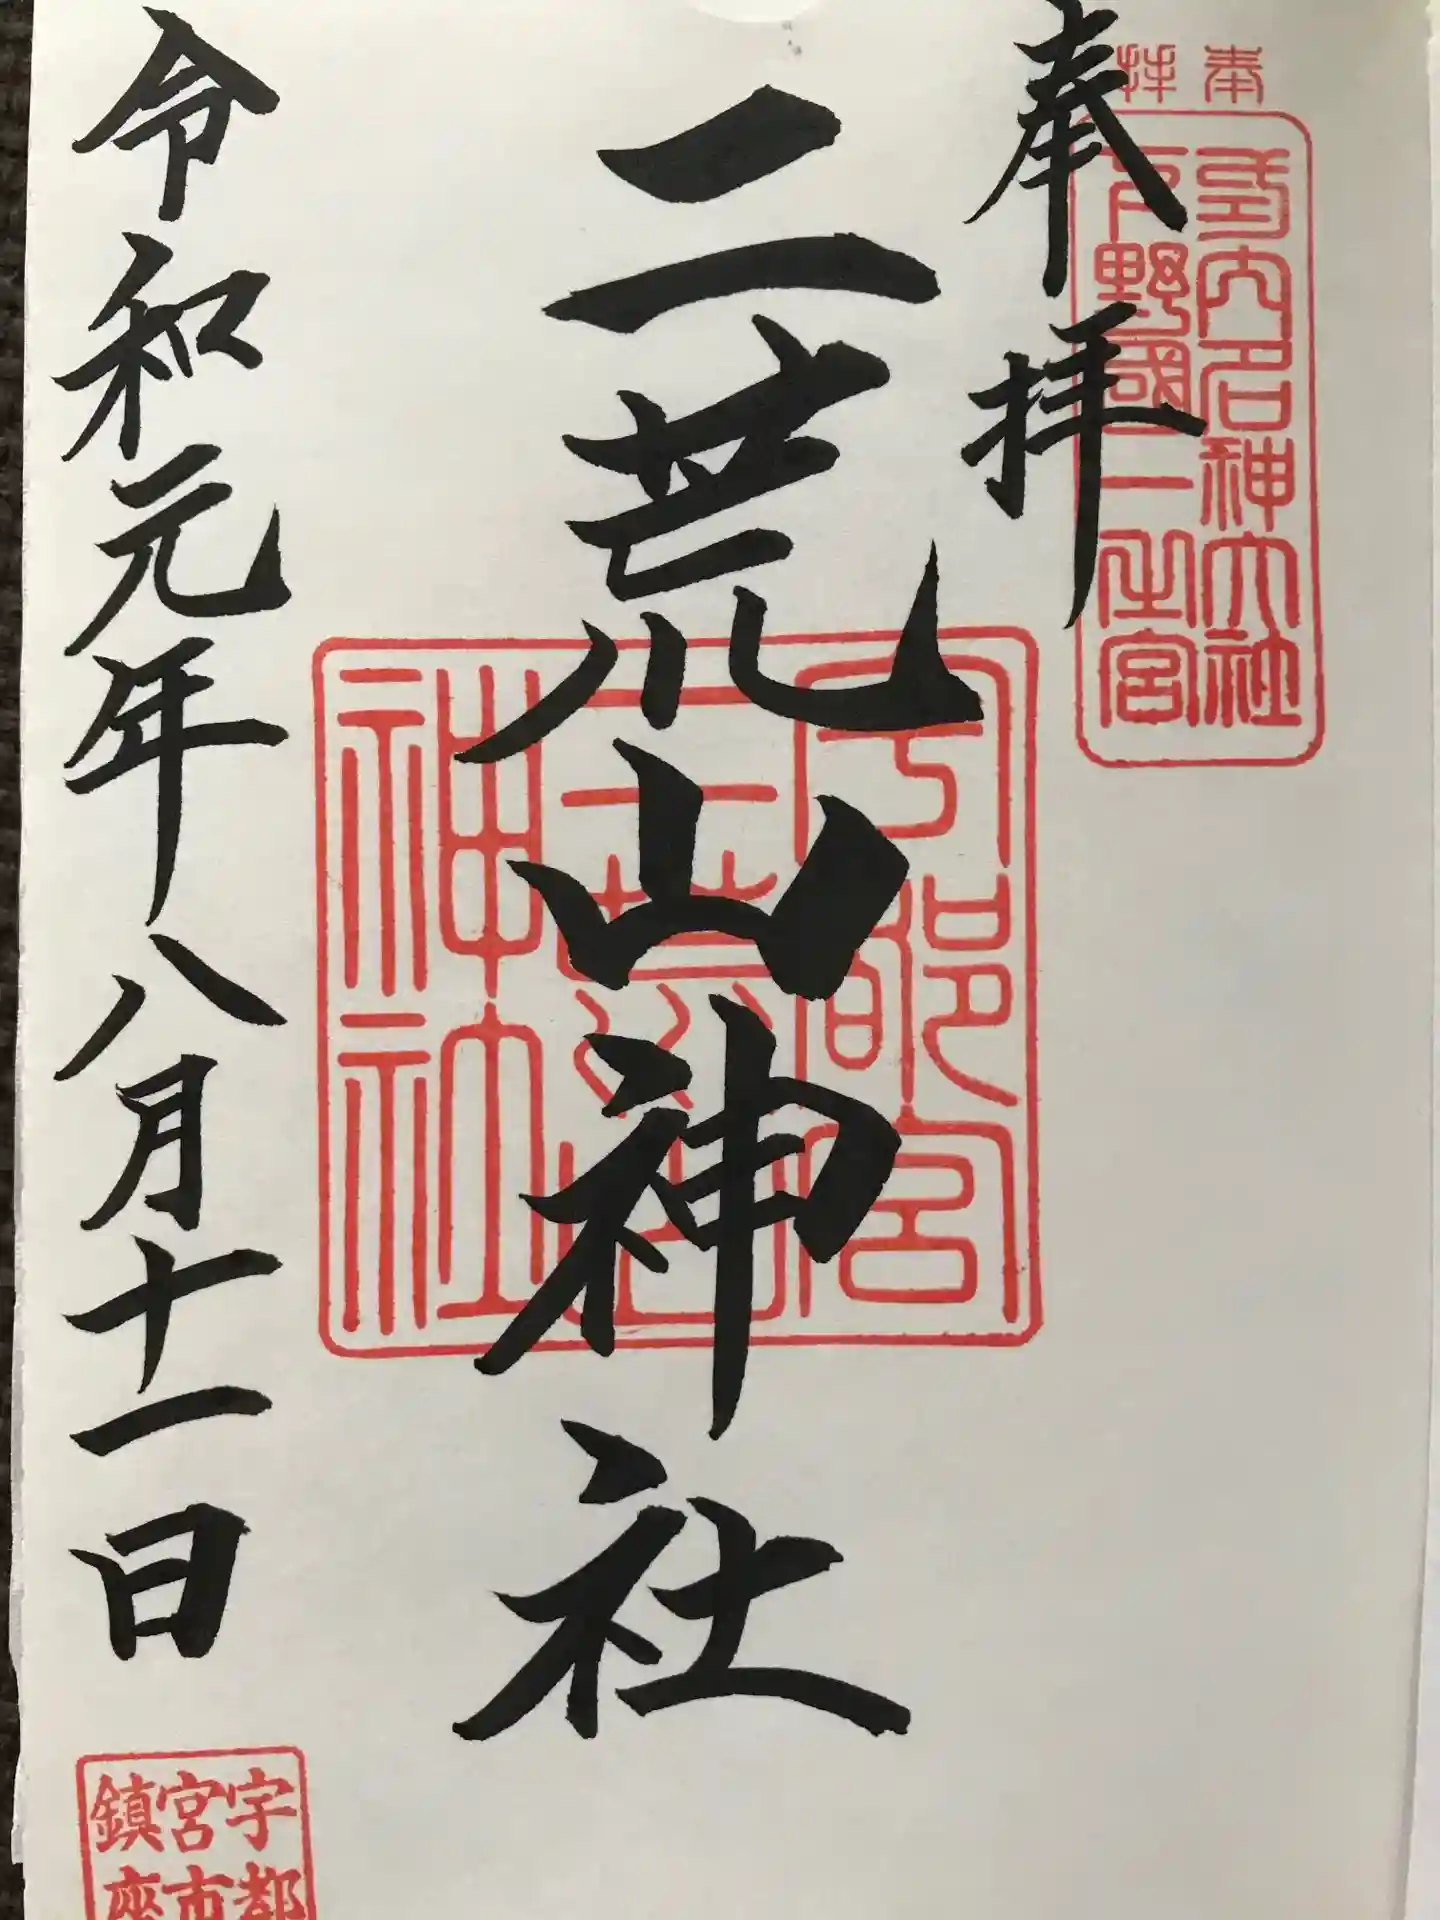 奉拝
奉拝
式内名神大社
下野國一之宮
二荒山神社
宇都宮
二荒山
神社
令和元年八月十一日
宇都
宮市
鎮座